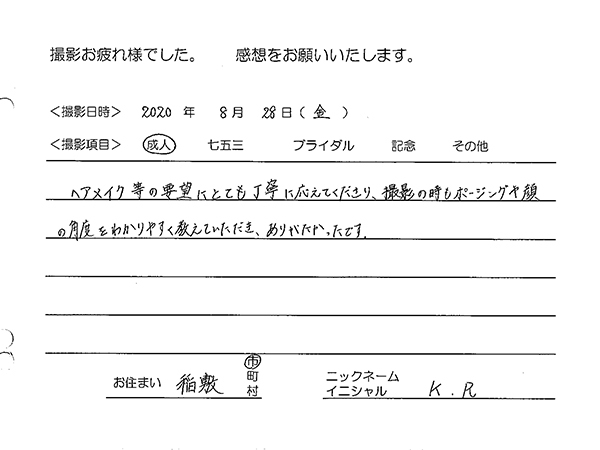 撮影お疲れ様でした。　感想をお願いいたします。
＜撮影日時＞ 2020 年 8 月 28 日（金）
＜撮影項目＞ 成人 七五三 ブライダル 記念 その他
ヘアメイク等の要望にとても丁寧に応えてくださり、撮影の時もポージングや顔
の角度をわかりやすく教えていただき、ありがたかったです。
お住まい 稲敷 市町村
ニックネーム
イニシャル K.R